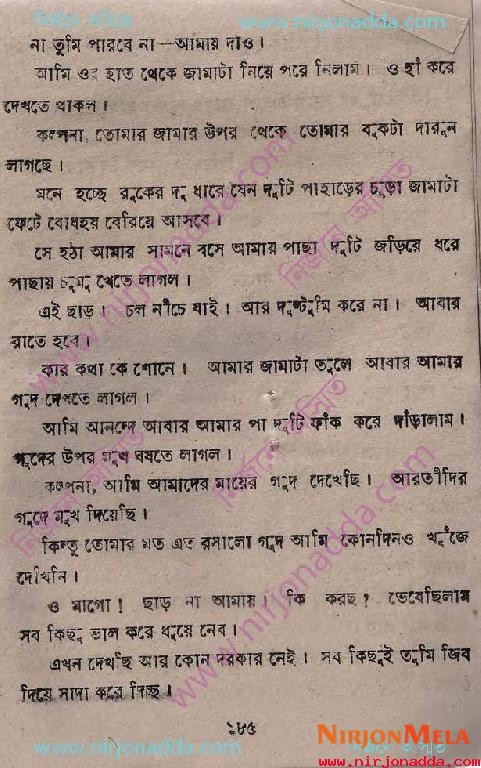 নির্জনে অসিত
www.nirjonadda.com
না তুমি পারবে না—আমায় দাও।
আমি ওর হাত থেকে জামাটা নিয়ে পরে নিলাম। ও হাঁ করে
দেখতে থাকল।
কল্পনা, তোমার জামার উপর থেকে তোমার বুকটা দারুন
লাগছে।
মনে হচ্ছে বুকের দু ধারে যেন দুটি পাহাড়ের চুড়া জামাটা
ফেটে বোধহয় বেরিয়ে আসবে।
সে হঠা আমার সামনে বসে আমার পাছা দুটি জড়িয়ে ধরে
পাছায় চুমু খেতে লাগল।
এই ছাড়। চল নীচে যাই। আর দুষ্টুমি করে না। আবার
রাতে হবে।
কার কথা কে শোনে। আমার জামাটা তুলে আবার আমার
গুদ দেখতে লাগল।
আমি আনন্দে আবার আমার পা দুটি ফাঁক করে দাঁড়ালাম।
গুদের উপর মুখ ঘষতে লাগল।
কল্পনা, আমি আমাদের মায়ের গুদ দেখেছি। আরতীদির
গুদে মুখ দিয়েছি।
কিন্তু তোমার মত এত রসালো গুদ আমি কোনদিনও খুঁজে
দেখিনি।
ও মাগো! ছাড় না আমায়। কি করছ? ভেবেছিলাম
সব কিছু ভাল করে ধুয়ে নেব।
এখন দেখছি আর কোন দরকার নেই। সব কিছুই তুমি জিব
দিয়ে সাদা করে দিচ্ছ।
১৮৫
www.nirjonadda.com
NIRJONMELA
www.nirjonadda.com